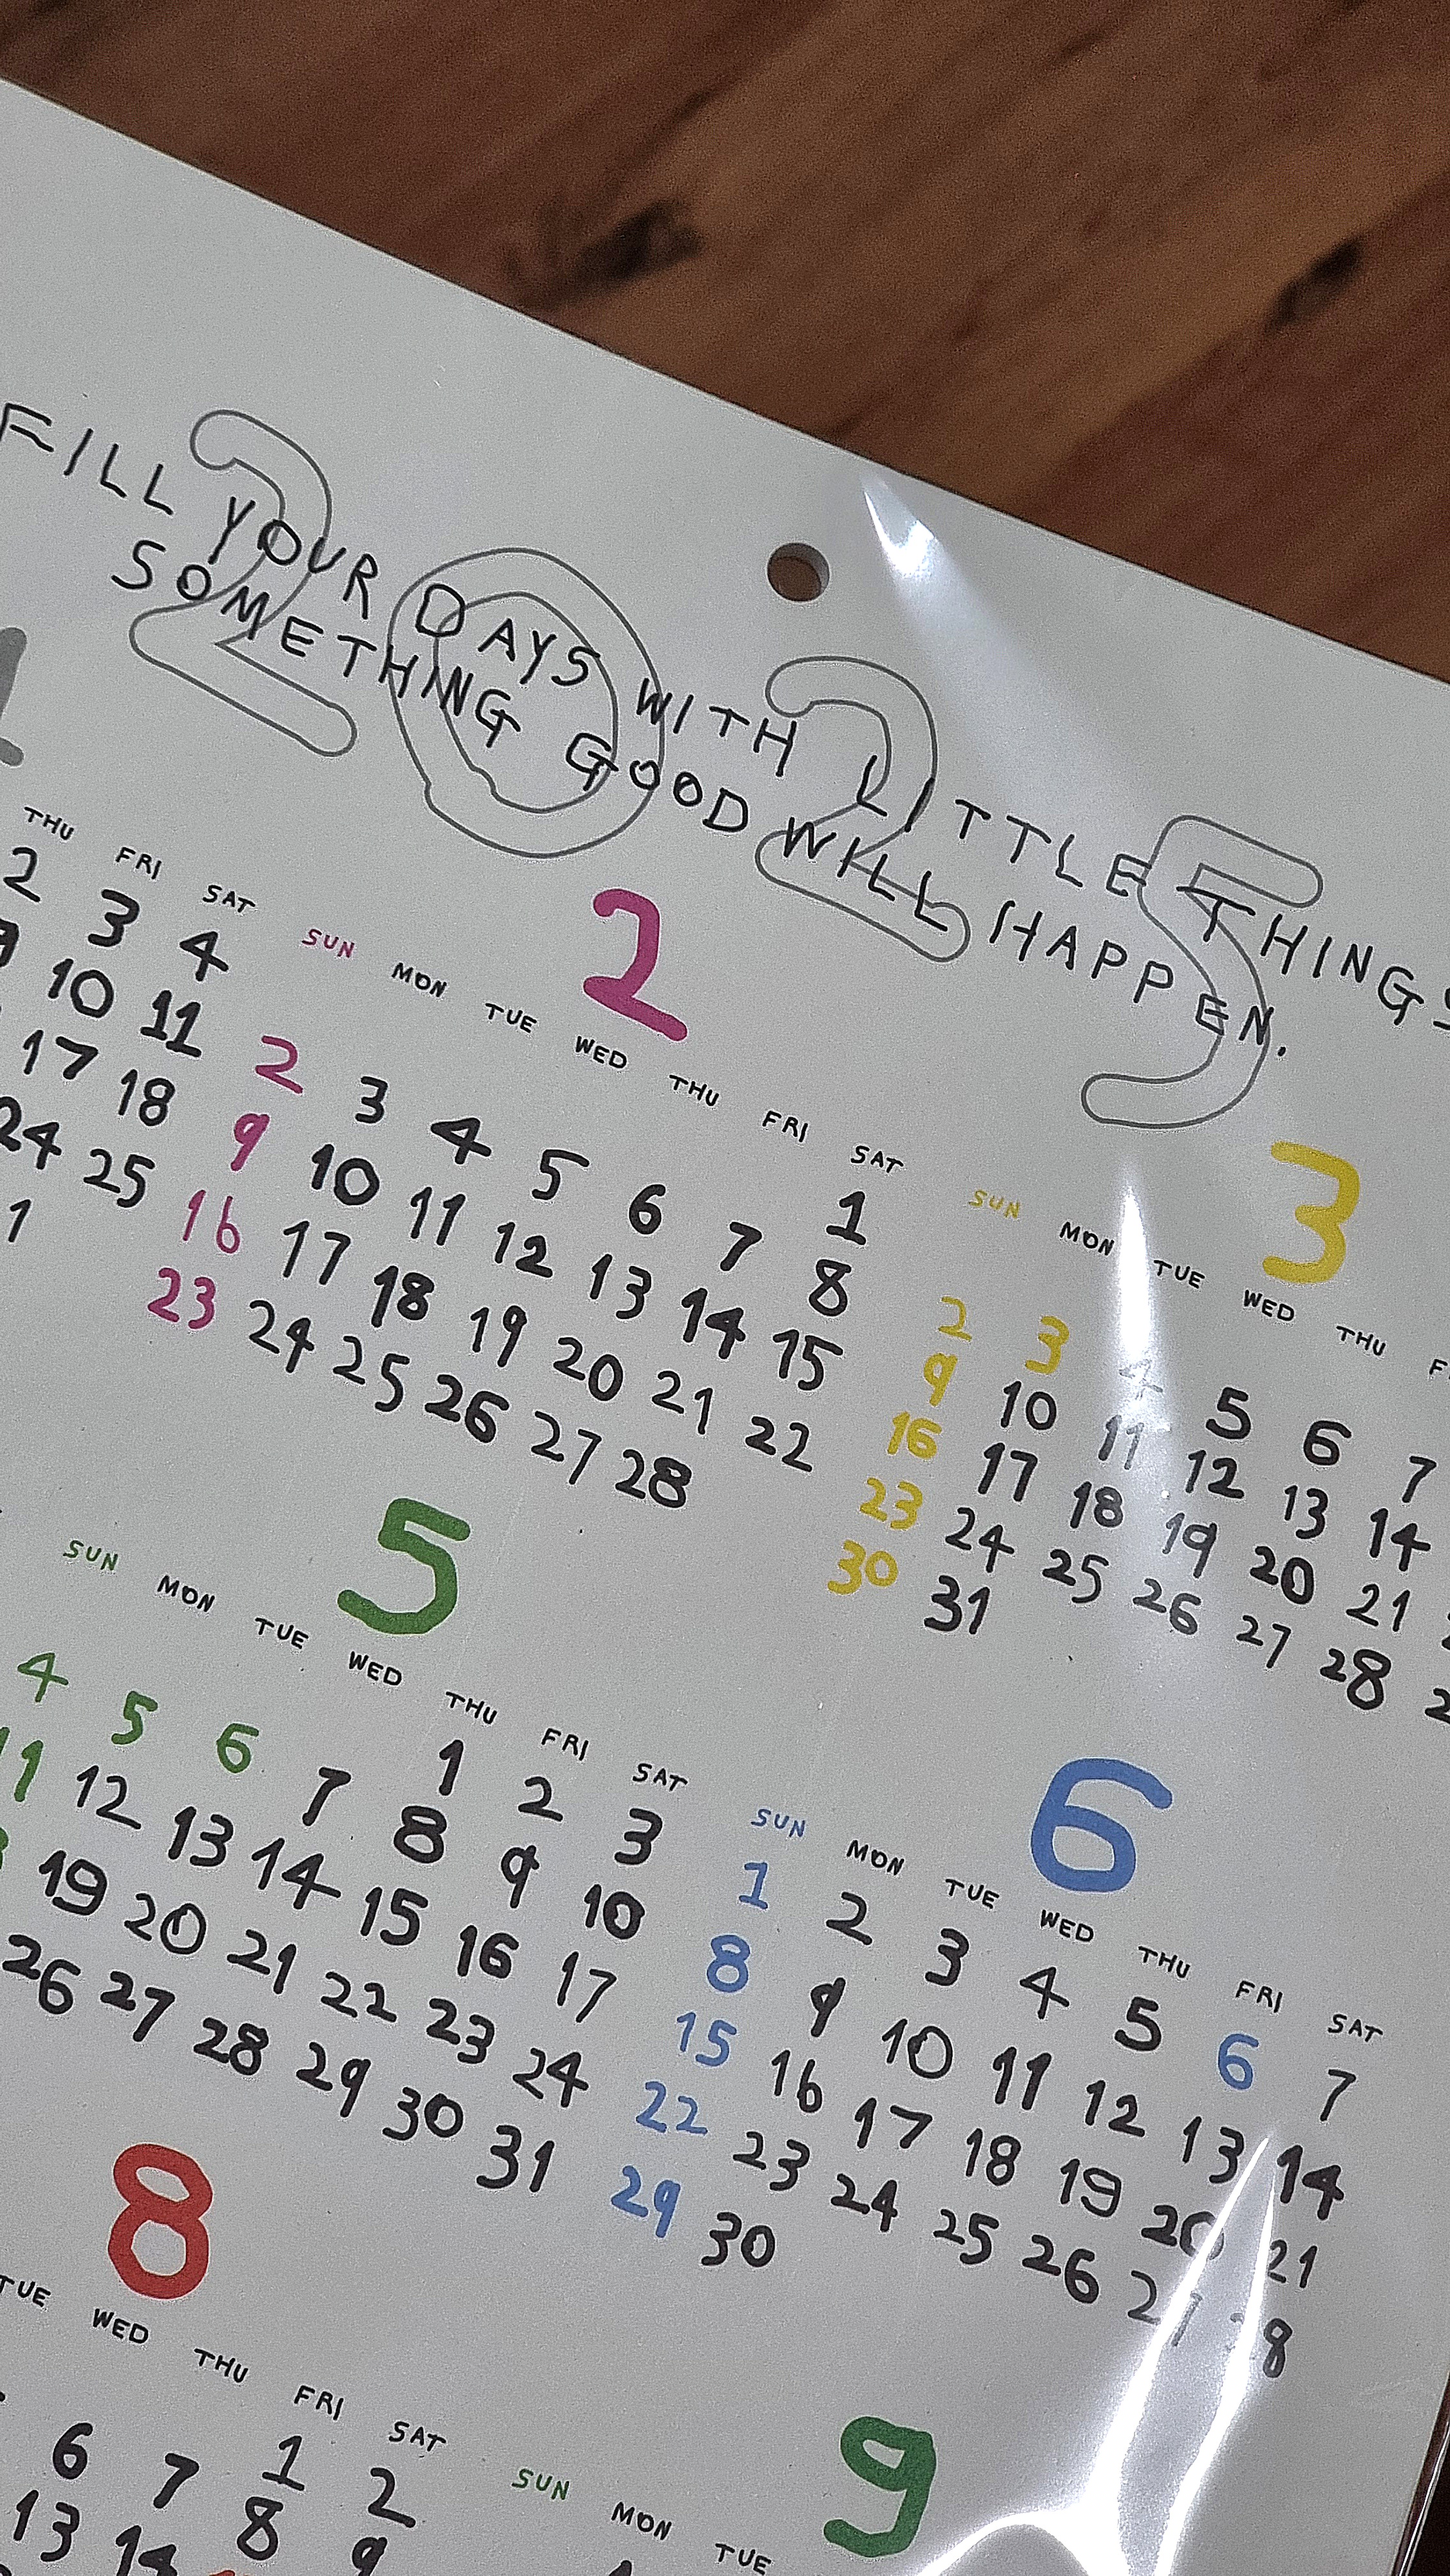 2025
FILL YOUR DAYS WITH LITTLE THINGS
SOMETHING GOOD WILL HAPPEN.
1
THU FRI SAT
2 3 4
9 10 11
17 18
24 25
2
SUN MON TUE WED THU FRI SAT
1
2 3 4 5 6 7 8
9 10 11 12 13 14 15
16 17 18 19 20 21 22
23 24 25 26 27 28
3
SUN MON TUE WED THU
2 3 4 5 6 7
9 10 11 12 13 14
16 17 18 19 20 21
23 24 25 26 27 28
30 31
5
SUN MON TUE WED THU FRI SAT
1 2 3
4 5 6 7 8 9 10
11 12 13 14 15 16 17
19 20 21 22 23 24
26 27 28 29 30 31
6
SUN MON TUE WED THU FRI SAT
1 2 3 4 5 6 7
8 9 10 11 12 13 14
15 16 17 18 19 20 21
22 23 24 25 26 27 28
29 30
8
TUE WED THU FRI SAT
1 2
6 7 8 9
13 14
9
SUN MON TUE